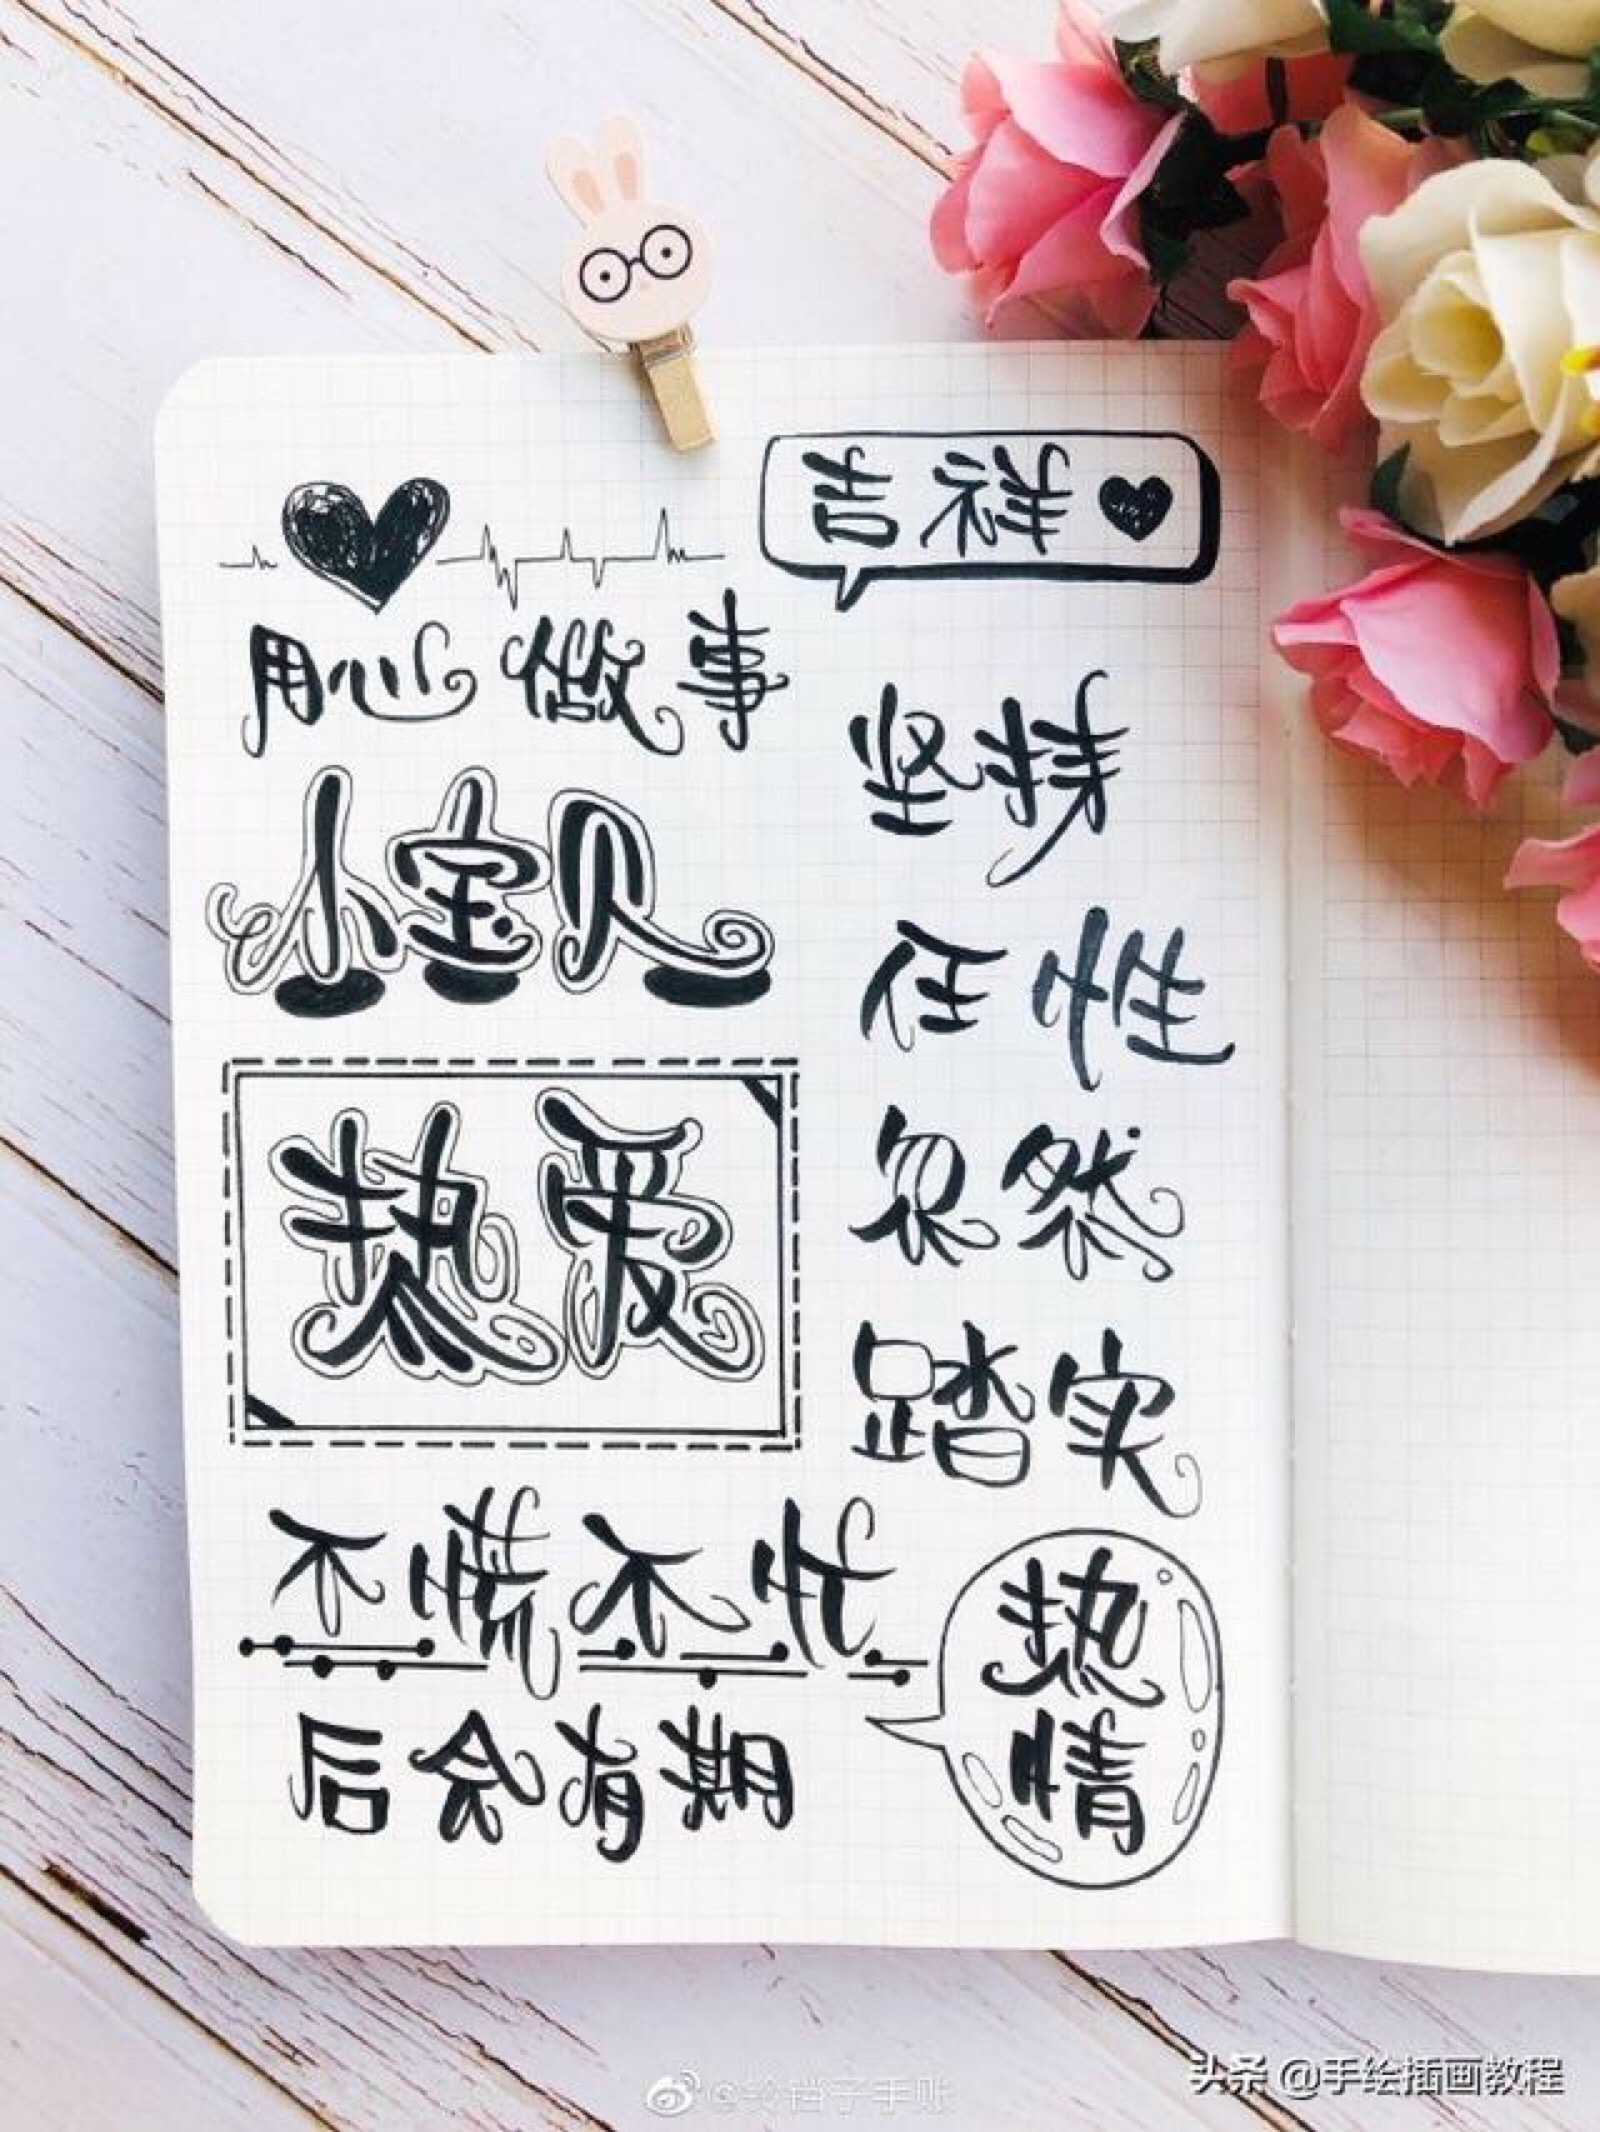 吉祥
用心做事
坚持
小宝贝
任性
热爱
忽然
踏实
不慌不忙
热情
后会有期
头条 @手绘插画教程